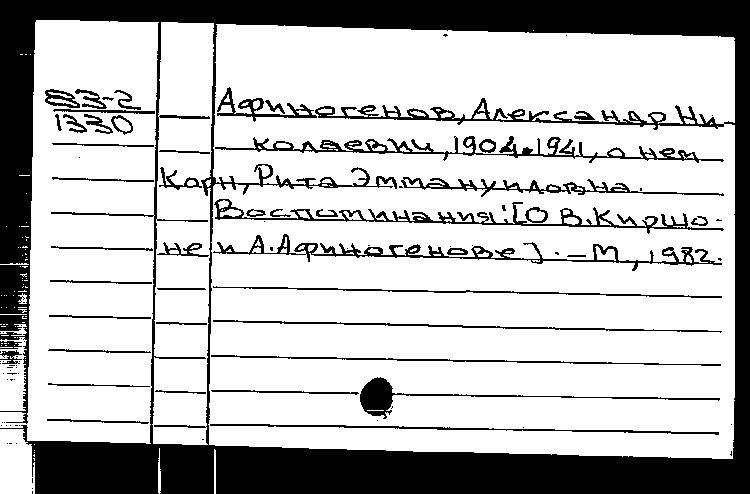 83-2
1330
Афиногенов, Александр Ни-
колаевич, 1904-1941, о нем
Корн, Рита Эммануиловна.
Воспоминания: [О В. Киршо-
не и А. Афиногенове]. - М, 1982.